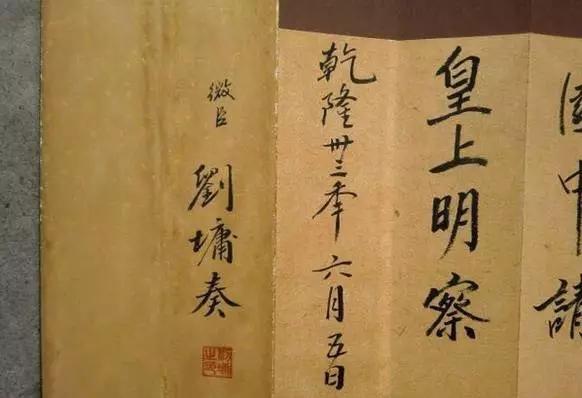 皇上明察
乾隆卅三年六月五日
微臣
劉墉奏